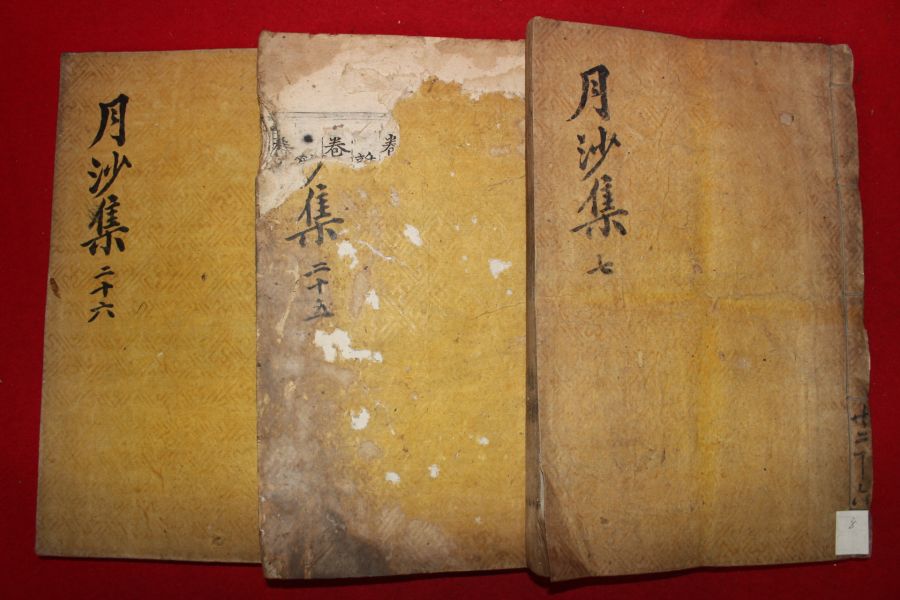 月沙集
二十六
卷
集
二十五
月沙集
七
8